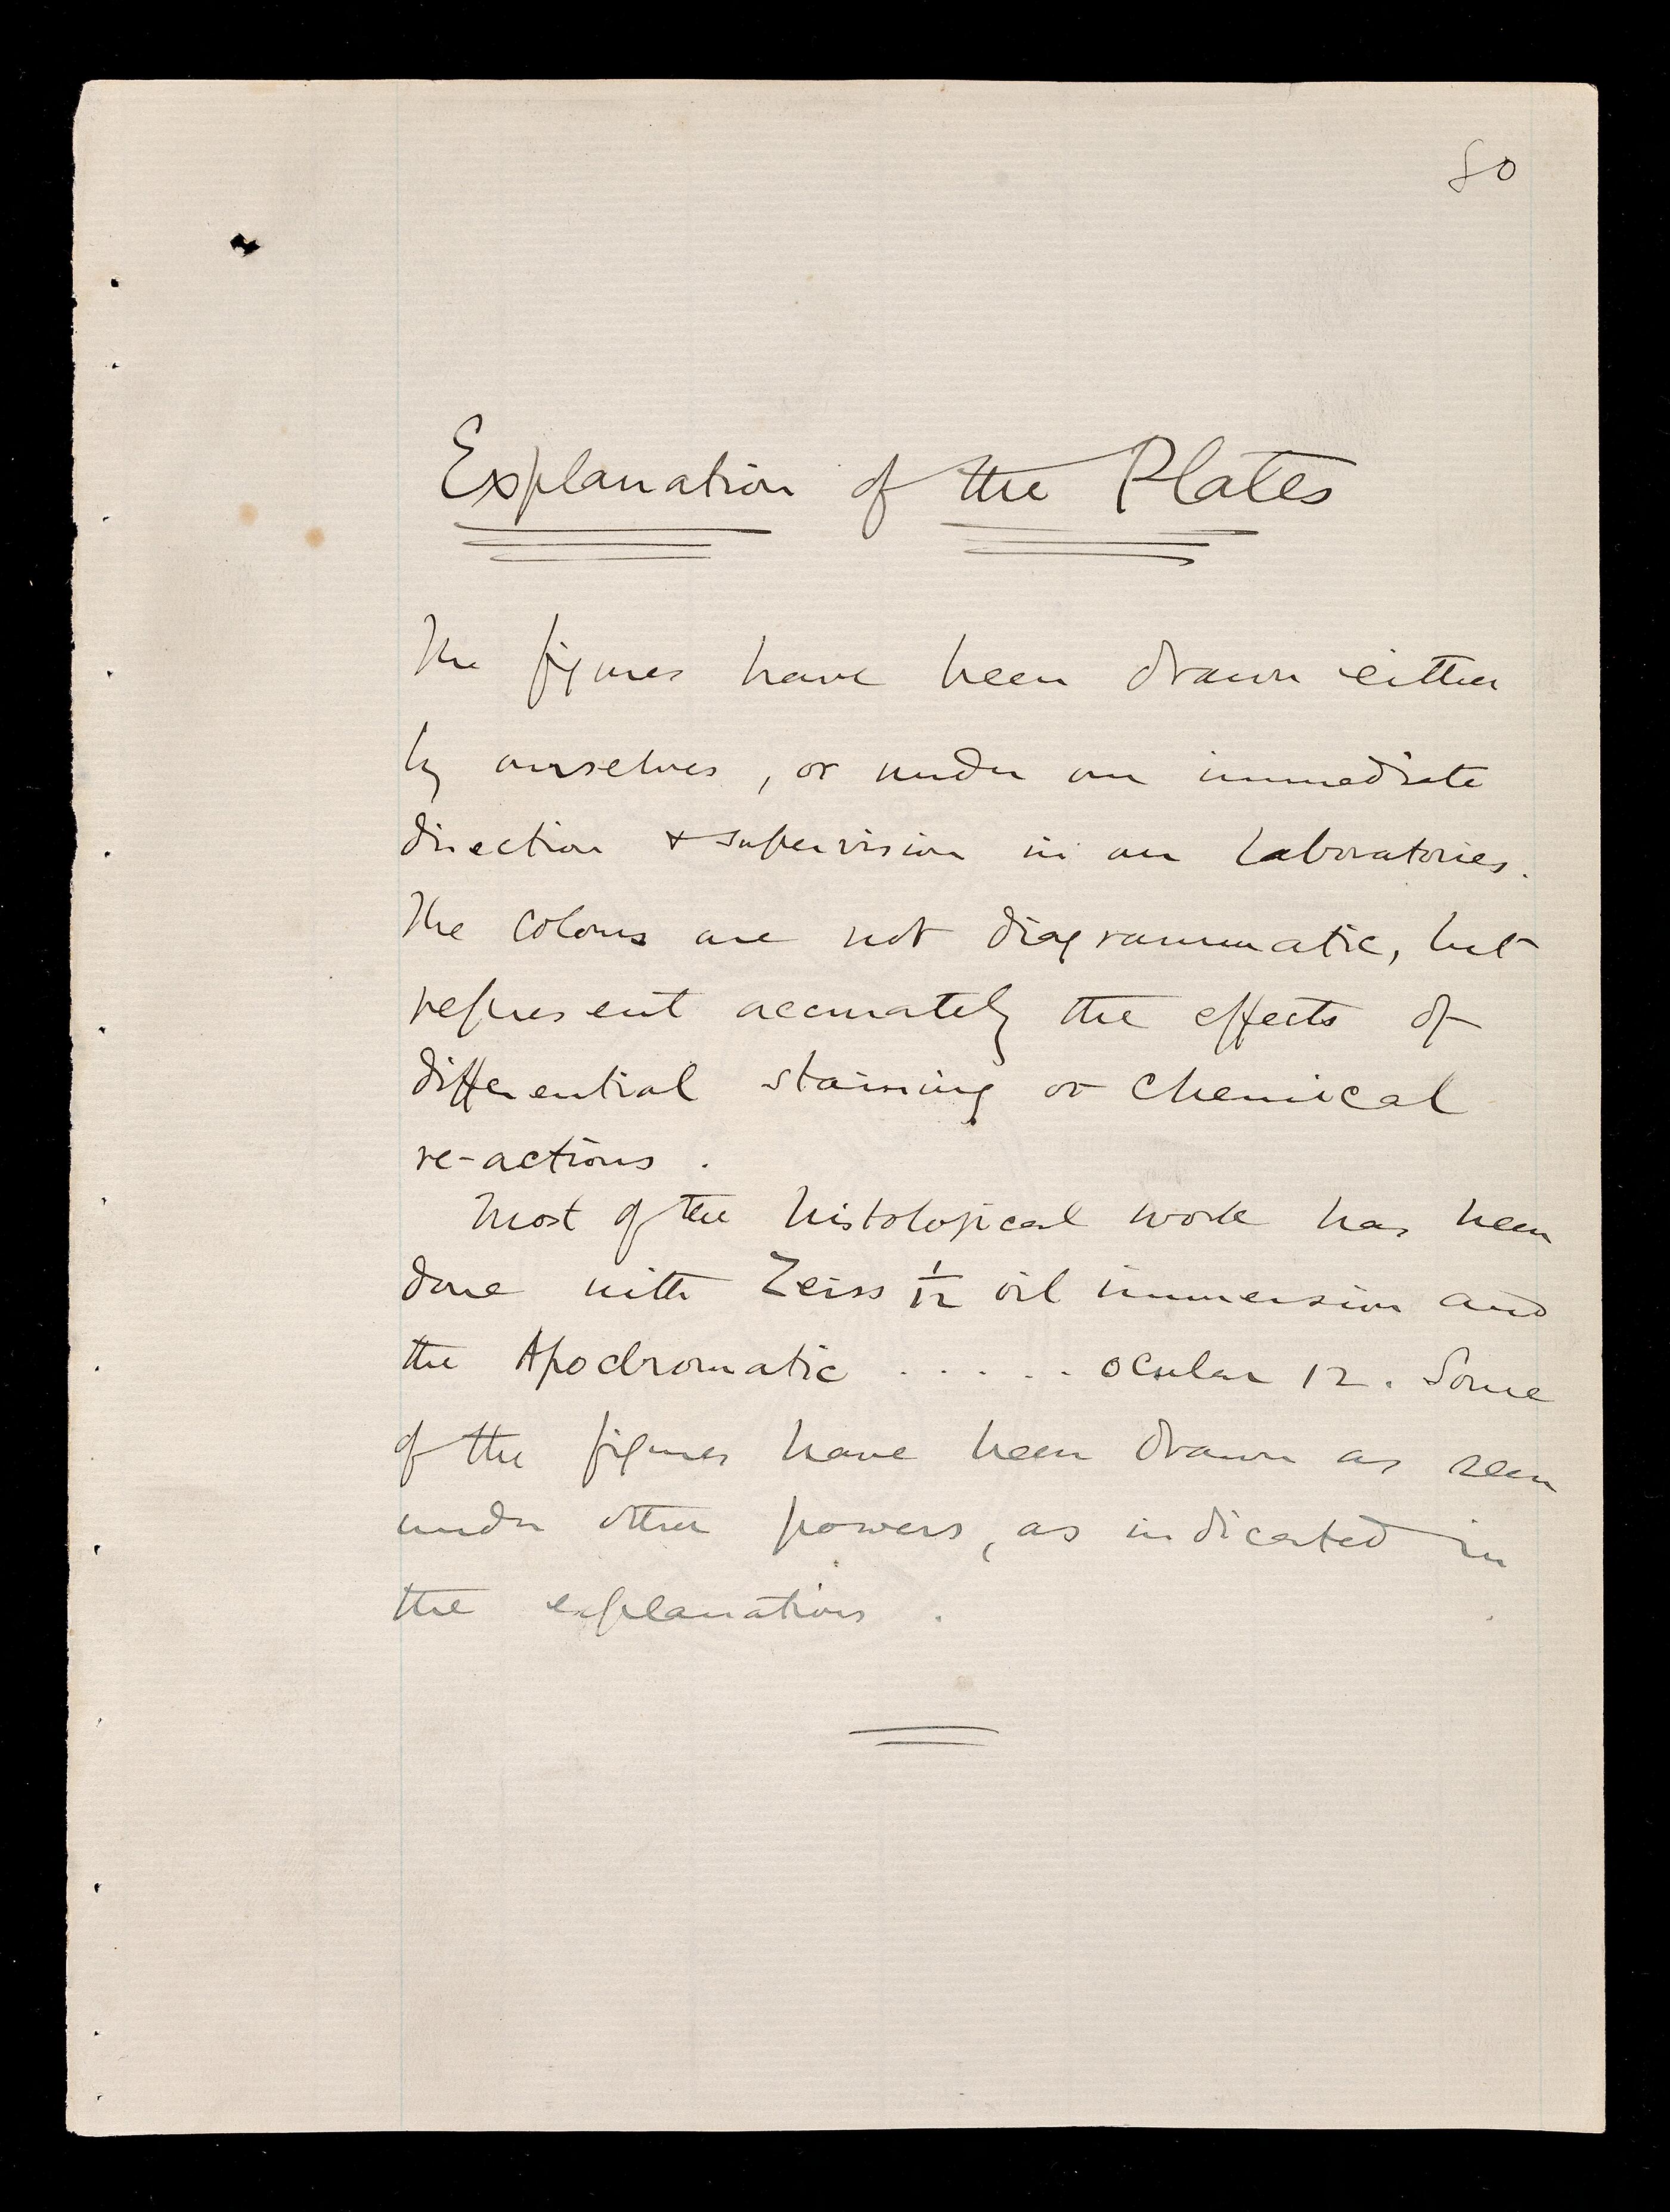 80
Explanation of the Plates
The figures have been drawn either
by ourselves, or under our immediate
direction & supervision in our Laboratories.
The colours are not diagrammatic, but
represent accurately the effects of
differential staining or chemical
re-actions.
Most of the histological work has been
done with Zeiss 1/12 oil immersion and
the Apochromatic ..... ocular 12. Some
of the figures have been drawn as seen
under other powers, as indicated in
the explanations.